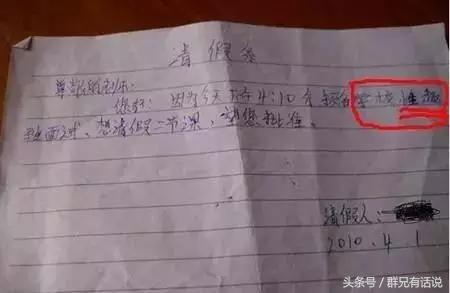 请假条
尊敬的刘老师:
您好! 因为今天下午4:10分
学校
面试, 想请假二节课, 望您批准。
请假人:
2010.4.1
头条号 / 群兄有话说